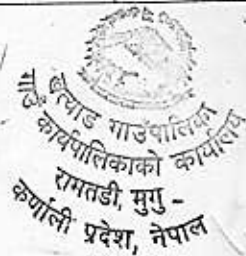 खत्याड गाउँपालिका
गाउँ कार्यपालिकाको कार्यालय
रामतडी, मुगु -
कर्णाली प्रदेश, नेपाल